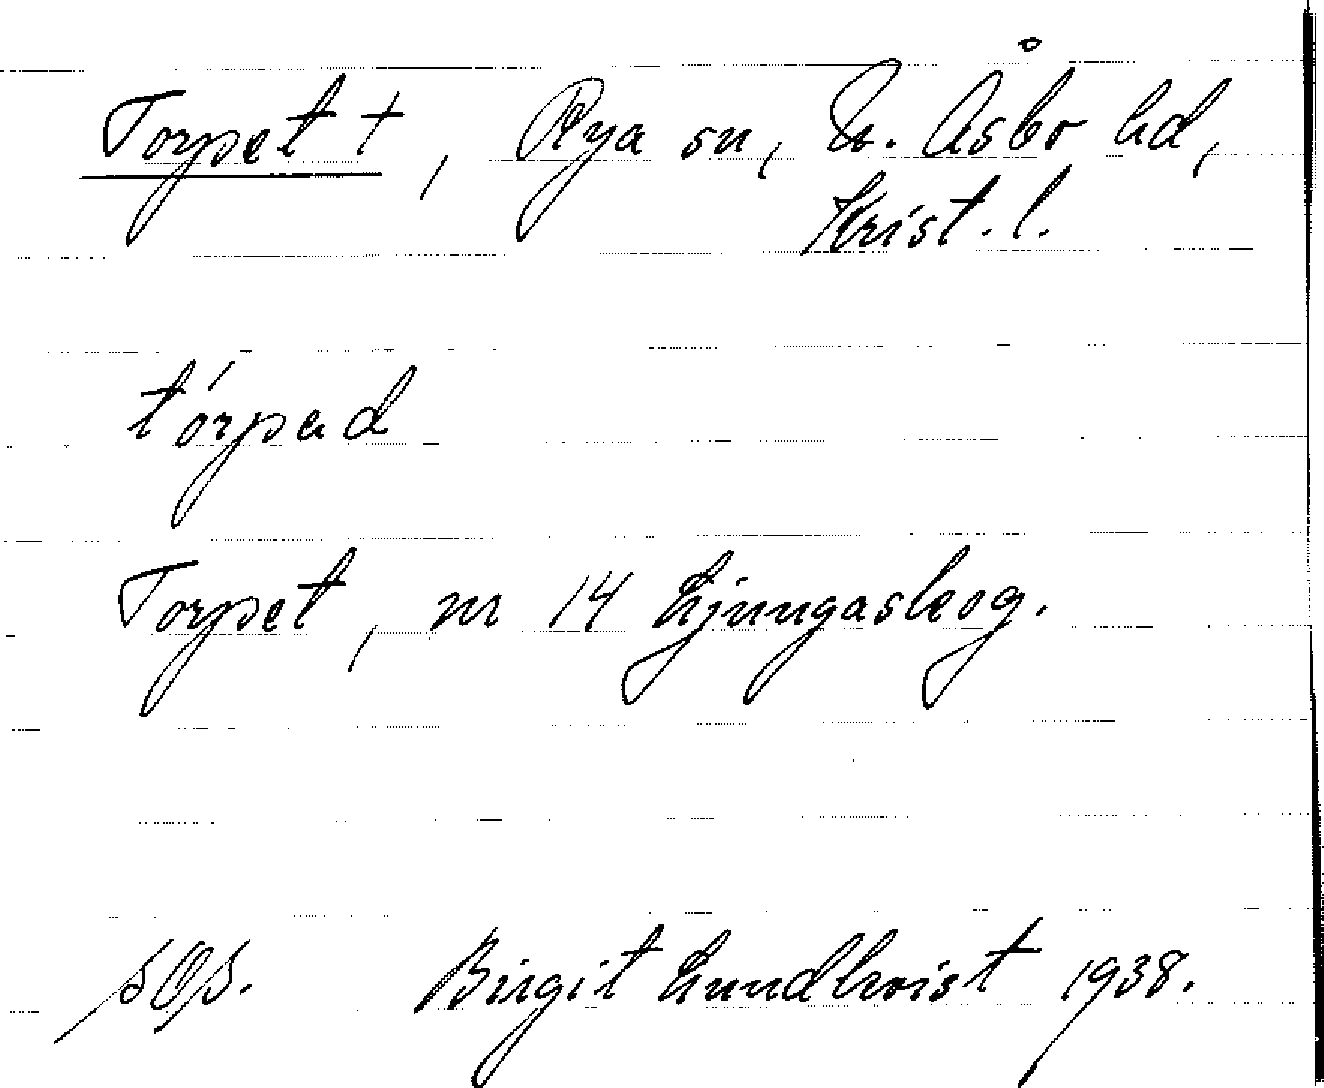 Torpet †, Rya sn, N. Åsbo hd,
Krist. l.
tórpad
Torpet, nr 14 Ljungaskog.
Birgit Lundkvist 1938.